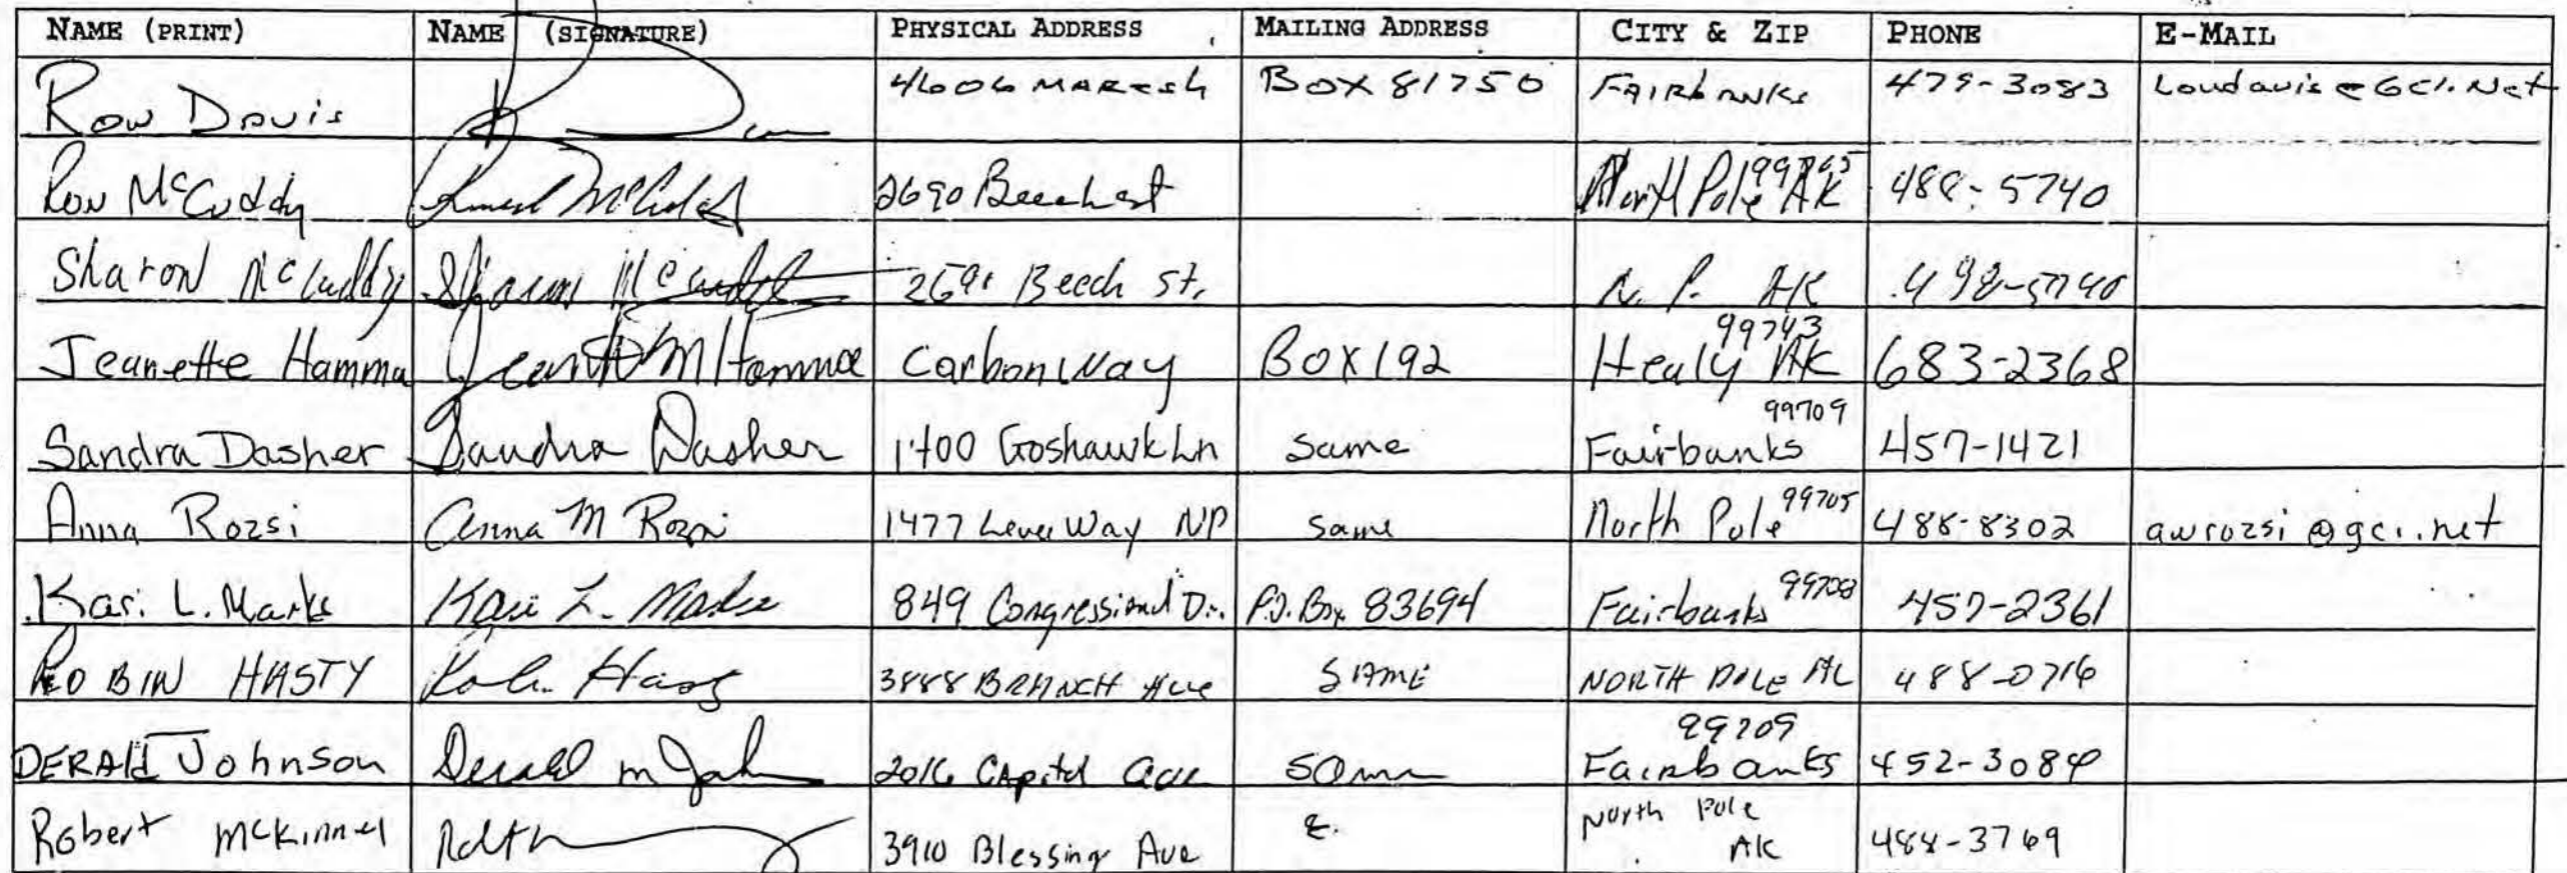 NAME (PRINT) NAME (SIGNATURE) PHYSICAL ADDRESS MAILING ADDRESS CITY & ZIP PHONE E-MAIL
Ron Davis 4606 MARESH BOX 81750 FAIRbANKS 479-3083 Loudavis@GCI.Net
Ron McCuddy 2690 Beech st North Pole AK 99705 488-5740
Sharon McCuddy Sharon McCuddy Beech St. N. P. AK
Jeanette Hamma Jeanette M Hamma Carbon Way BOX 192 Healy AK 99743 683-2368
Sandra Dasher Sandra Dasher 1400 Goshawk Ln Same Fairbanks 99709 457-1421
Anna Rozsi Anna M Rozsi 1477 Levee Way NP Same North Pole 99705 488-8302 awrozsi@gci.net
Kari L. Marks Kari L. Marks 849 Congressional Dr. P.O. Box 83694 Fairbanks 99708 457-2361
ROBIN HASTY Robin Hasty 3888 BRANCH AVE SAME NORTH POLE AK 488-0716
DERALd Johnson Derald m Joh 2016 CApitol ave Same Fairbanks 99709 452-3084
Robert McKinnel 3910 Blessing Ave North Pole AK 488-3769